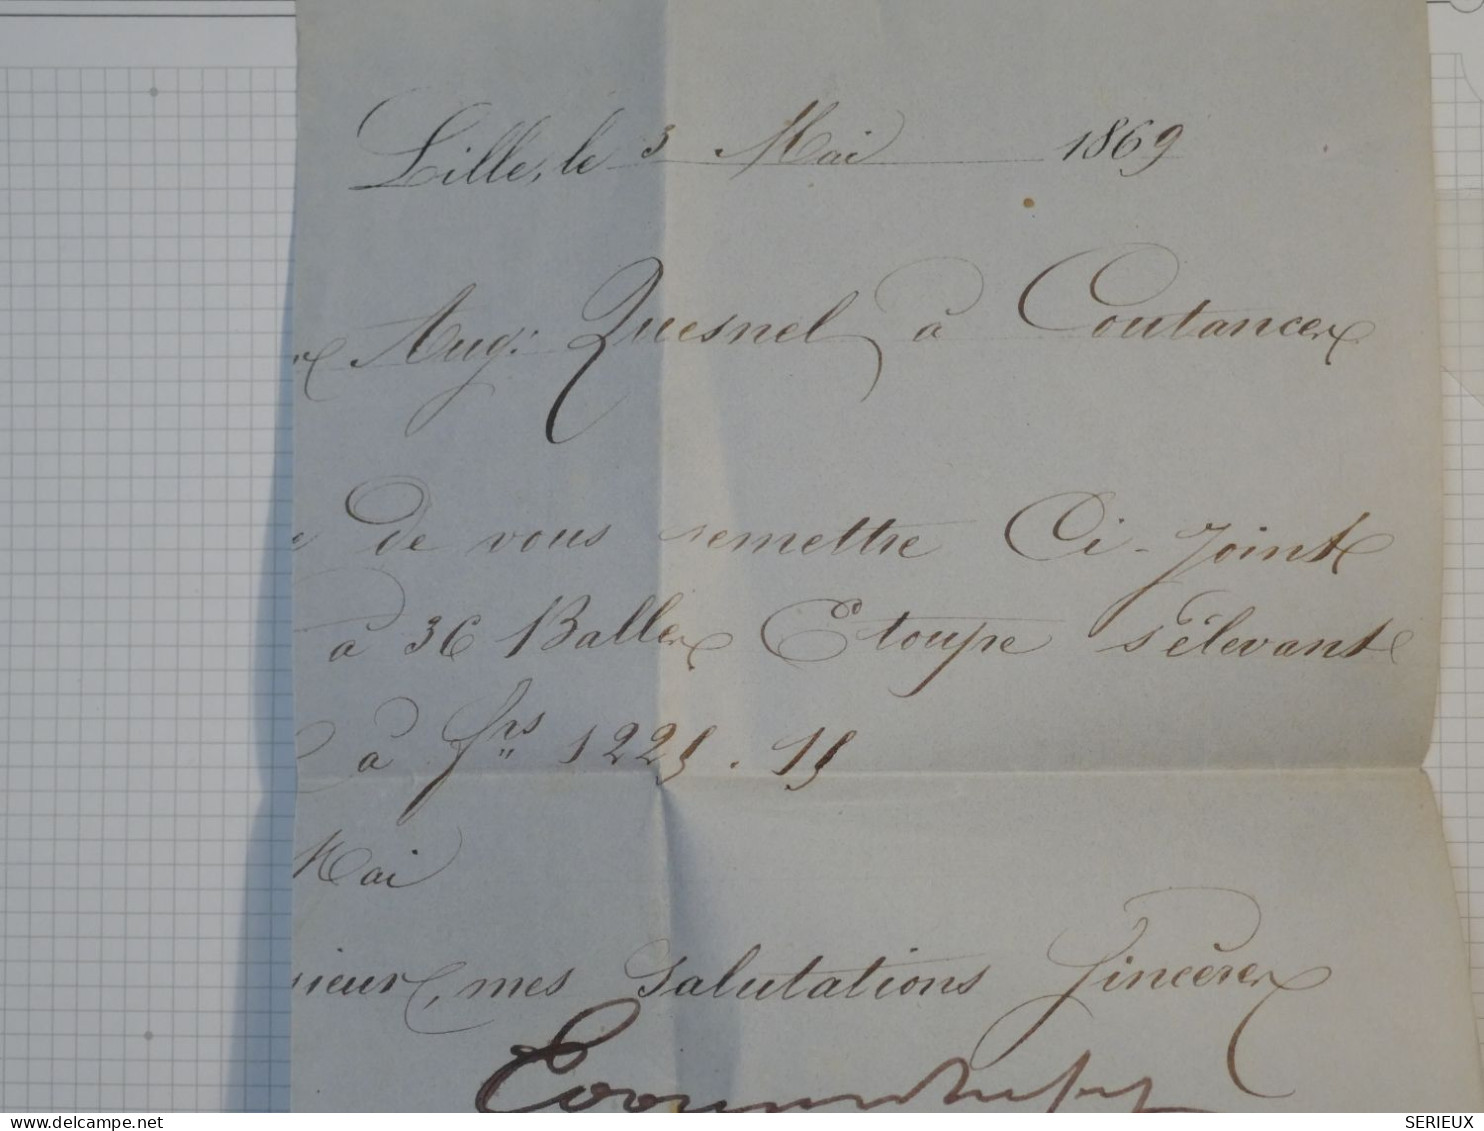 Lille, le 3 Mai 1869
Aug. Quesnel à Coutances
de vous remettre Ci-joint
à 36 Balles Etoupe s'élevant
à frs 1225.15
Mai
sieur, mes Salutations Sincères
SERIEUX